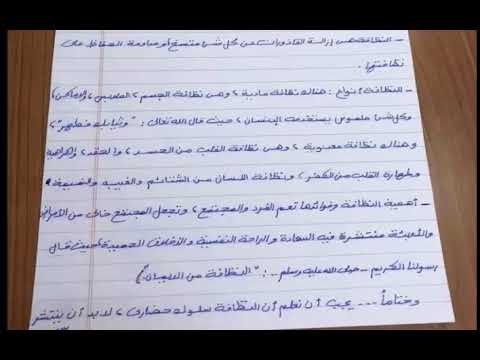 - النظافة هي إزالة القاذورات من كل شئ متسخ أو مداومة الحفاظ على
نظافتها.
- النظافة أنواع: هناك نظافة مادية، وهي نظافة الجسم، الملابس، والأماكن،
وكل شئ ملموس يستخدمه الإنسان، حيث قال الله تعالى: "وثيابك فطهر"،
وهناك نظافة معنوية، وهي نظافة القلب من الحسد، والحقد، والكراهية
وطهارة القلب من الكفر، ونظافة اللسان من الشتائم والغيبة والنميمة.
- أهمية النظافة وفوائدها تعم الفرد والمجتمع، وتجعل المجتمع خالى من الأمراض
والأوبئة منتشرة فيه السعادة والراحة النفسية والأخلاق الحميدة، حيث قال
رسولنا الكريم - صلى الله عليه وسلم -: "النظافة من الإيمان".
وختاماً --- يجب أن نعلم أن النظافة سلوك حضارى، لابد أن ينتشر